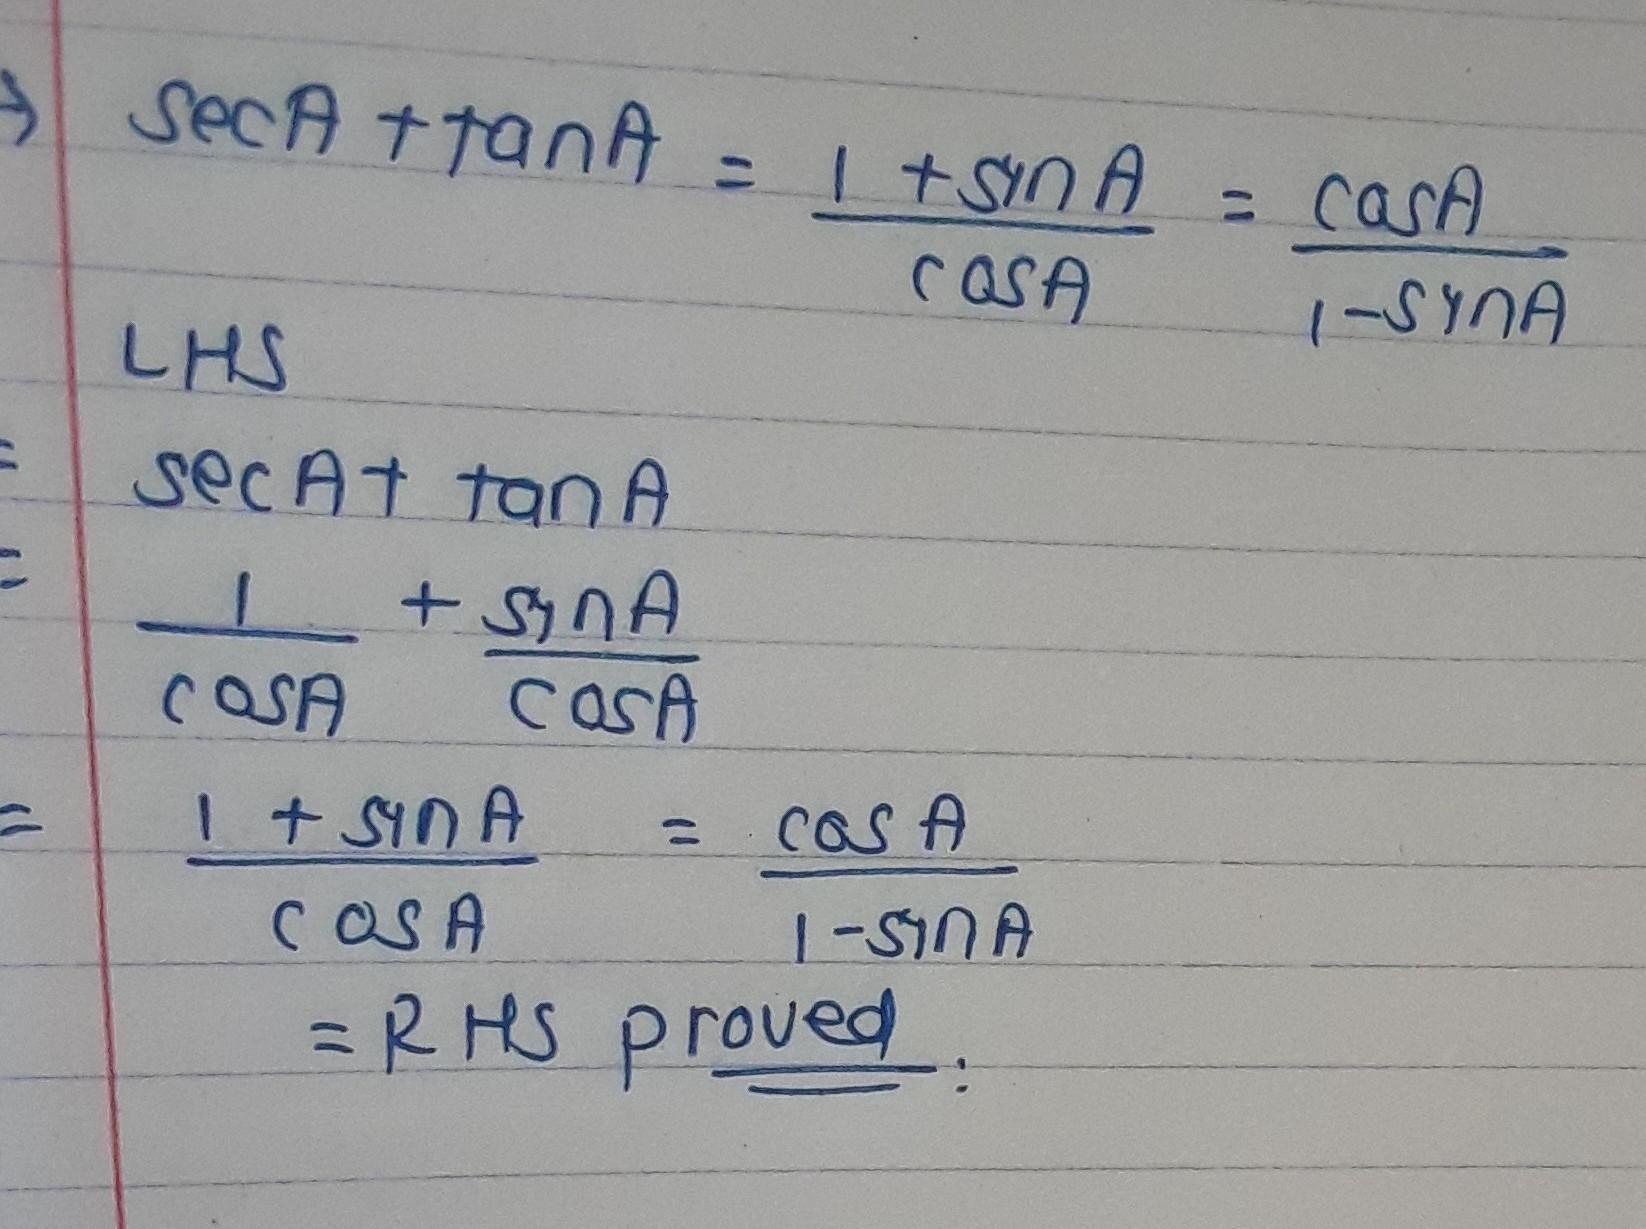 → secA + tanA = 1 + sinA / cosA = cosA / 1 - sinA
LHS
= secA + tanA
= 1 / cosA + sinA / cosA
= 1 + sinA / cosA = cosA / 1 - sinA
= RHS proved.